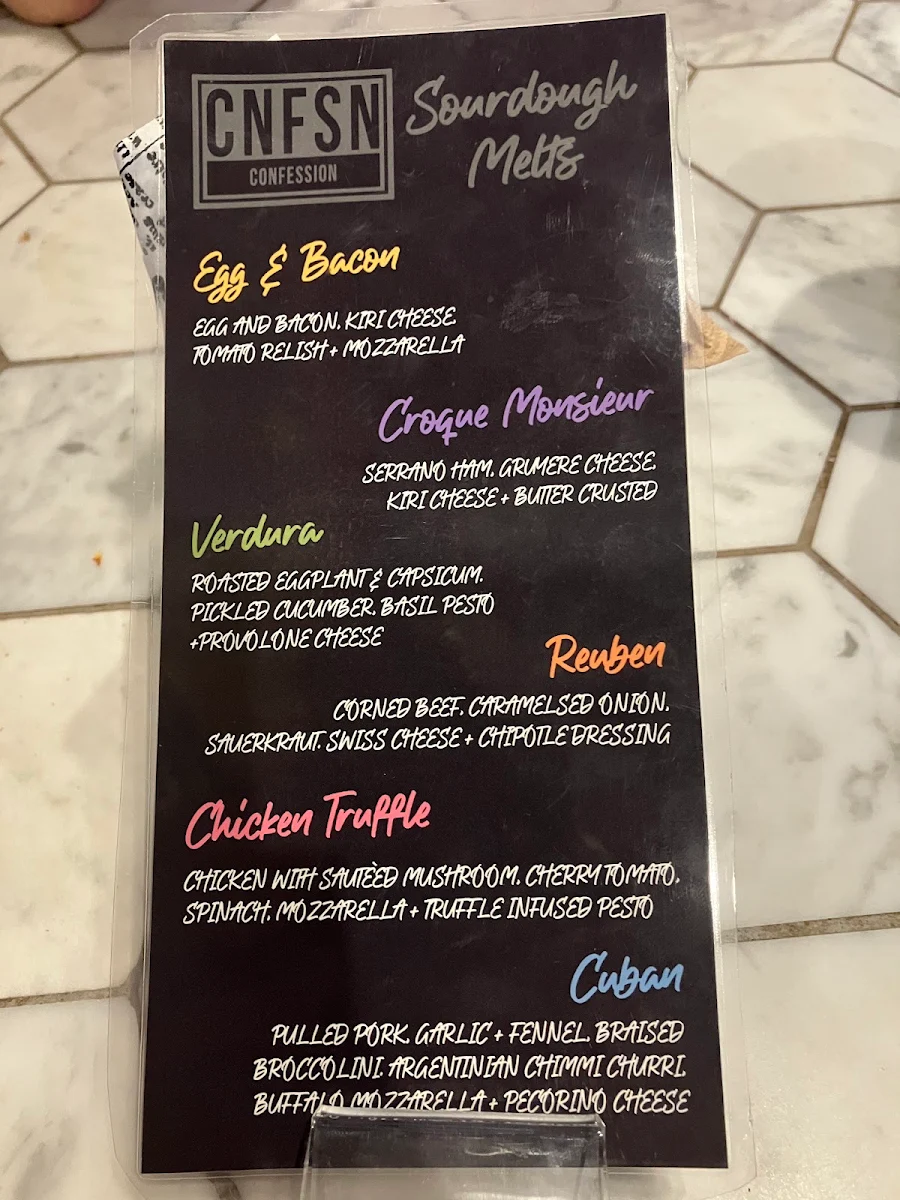 CNFSN
CONFESSION
Sourdough
Melts
Egg & Bacon
EGG AND BACON, KIRI CHEESE,
TOMATO RELISH + MOZZARELLA
Croque Monsieur
SERRANO HAM, GRUMERE CHEESE,
KIRI CHEESE + BUTTER CRUSTED
Verdura
ROASTED EGGPLANT & CAPSICUM,
PICKLED CUCUMBER, BASIL PESTO
+PROVOLONE CHEESE
Reuben
CORNED BEEF, CARAMELSED ONION,
SAUERKRAUT, SWISS CHEESE + CHIPOTLE DRESSING
Chicken Truffle
CHICKEN WITH SAUTÈED MUSHROOM, CHERRY TOMATO,
SPINACH, MOZZARELLA + TRUFFLE INFUSED PESTO
Cuban
PULLED PORK, GARLIC + FENNEL, BRAISED
BROCCOLINI, ARGENTINIAN CHIMMI CHURRI,
BUFFALO MOZZARELLA + PECORINO CHEESE